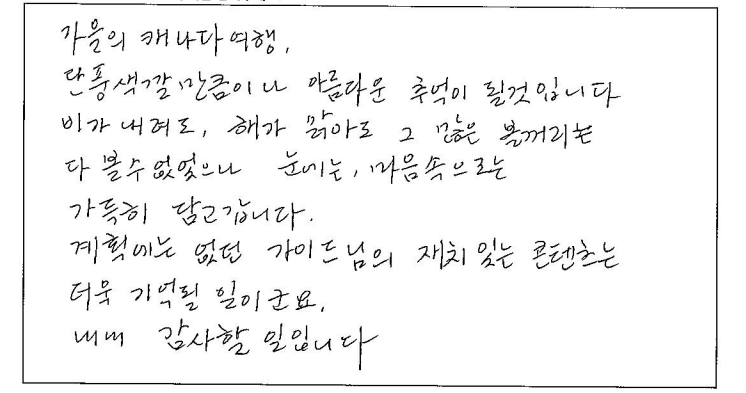 가을의 캐나다 여행,
단풍색깔 만큼이나 아름다운 추억이 될것입니다
비가 내려도, 해가 맑아도 그 많은 볼꺼리는
다 볼수 없었으나 눈에는, 마음속으로는
가득히 담고갑니다.
계획에는 없던 가이드님의 재치 있는 콘텐츠는
더욱 기억될 일이군요,
내내 감사할 일입니다